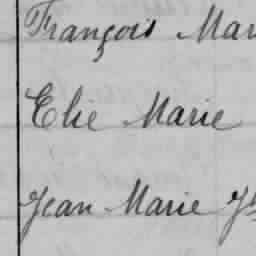 François Mar
Elie Marie
Jean Marie